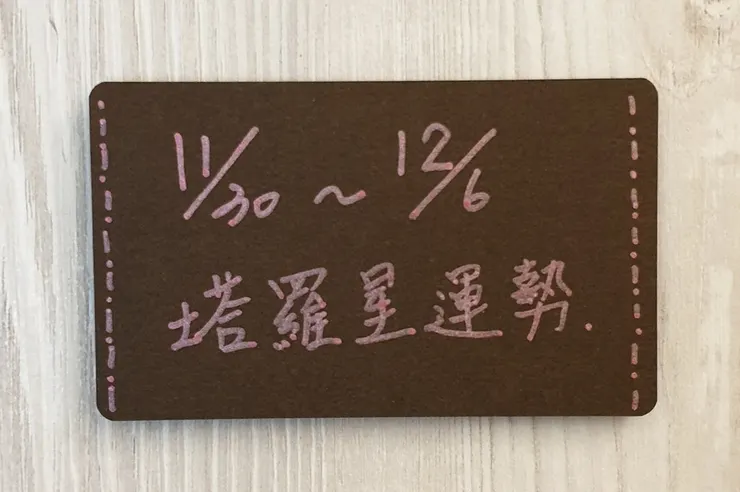 11/30 ~ 12/6
塔羅星運勢.